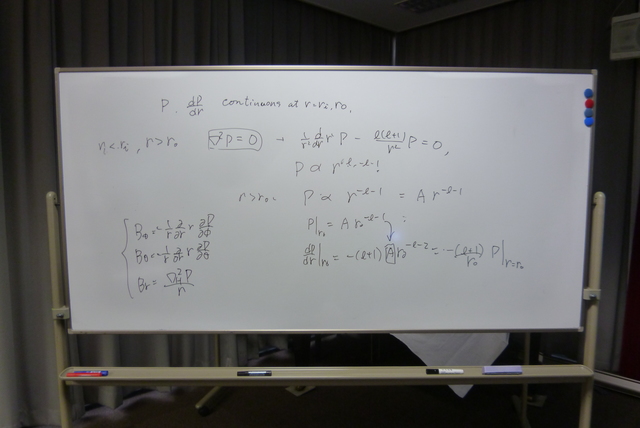 P, dP/dr continuous at r=ri, ro.
r<ri, r>ro ∇²P=0 → 1/r² d/dr r² P - ℓ(ℓ+1)/r² P=0,
P ∝ r^ℓ, r^-ℓ-1
r>ro. P ∝ r^-ℓ-1 = A r^-ℓ-1
P|ro = A ro^-ℓ-1
dP/dr|ro = -(ℓ+1) A ro^-ℓ-2 = -(ℓ+1)/ro P|r=ro
Bφ = 1/r ∂/∂r r ∂P/∂φ
Bθ = 1/r ∂/∂r r ∂P/∂θ
Br = ∇²P/r